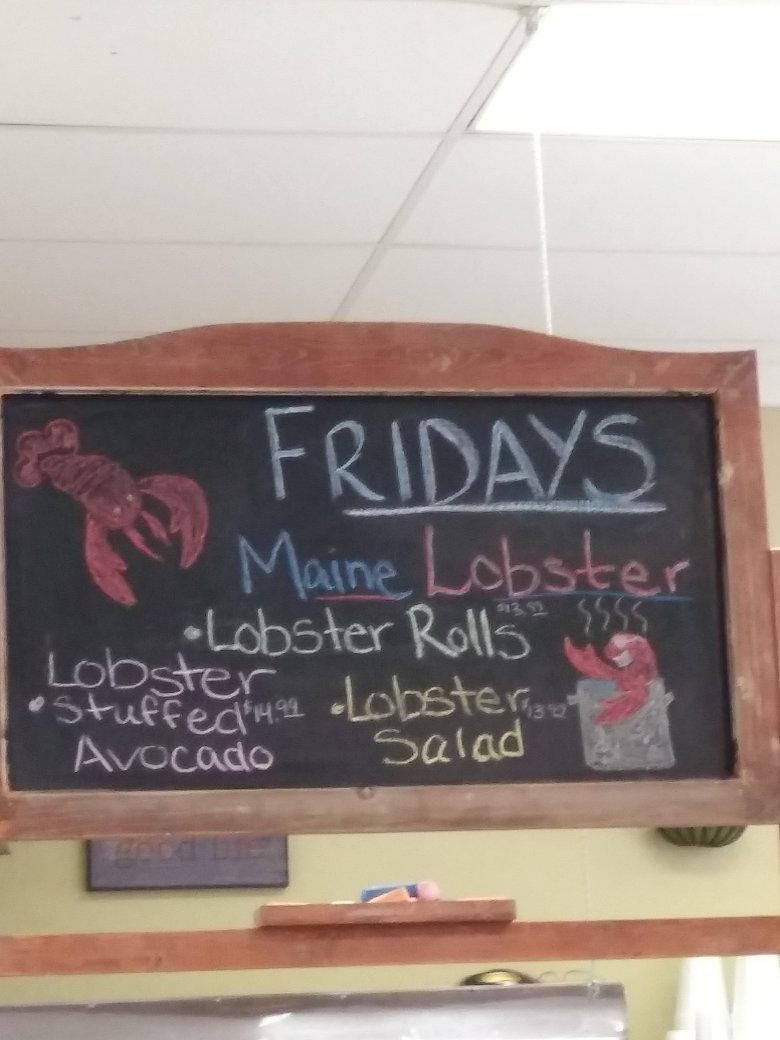 FRIDAYS
Maine Lobster
• Lobster Rolls
Lobster
• Stuffed $14.99
Avocado
• Lobster
Salad